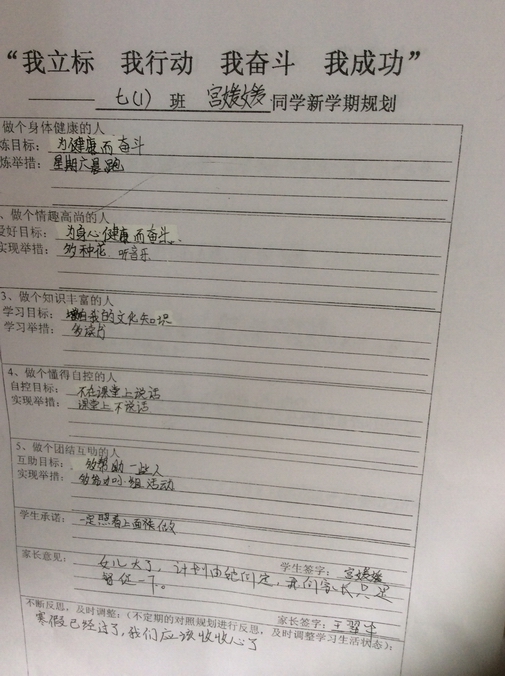 “我立标 我行动 我奋斗 我成功”
七(1) 班 宫媛媛 同学新学期规划
做个身体健康的人
炼目标: 为健康而奋斗
炼举措: 星期六晨跑
、做个情趣高尚的人
爱好目标: 为身心健康而奋斗。
实现举措: 多种花、听音乐
3、做个知识丰富的人
学习目标: 增强我的文化知识
学习举措: 多读书
4、做个懂得自控的人
自控目标: 不在课堂上说话
实现举措: 课堂上不说话
5、做个团结互助的人
互助目标: 多帮助一些人
实现举措: 多参加小组活动
学生承诺: 一定照着上面张做
学生签字: 宫媛媛
家长意见: 女儿大了，计划由她们定，我们家长只是
督促一下。
家长签字: 王翠
不断反思，及时调整:（不定期的对照规划进行反思，及时调整学习生活状态）:
寒假已经过了,我们应该收收心了